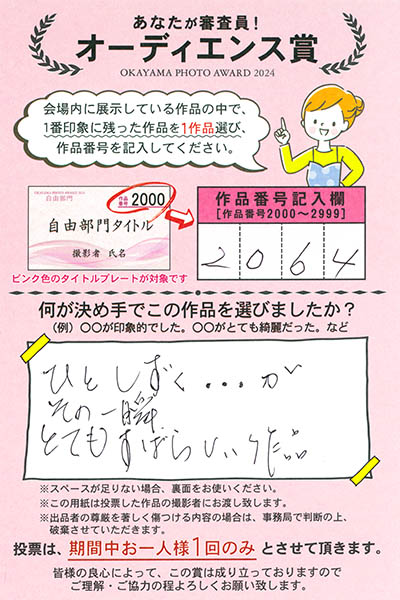 あなたが審査員！
オーディエンス賞
OKAYAMA PHOTO AWARD 2024
会場内に展示している作品の中で、
1番印象に残った作品を1作品選び、
作品番号を記入してください。
OKAYAMA PHOTO AWARD 2024
自由部門
作品番号 2000
自由部門タイトル
撮影者 氏名
ピンク色のタイトルプレートが対象です
作品番号記入欄
[作品番号2000〜2999]
2064
何が決め手でこの作品を選びましたか？
（例）〇〇が印象的でした。〇〇がとても綺麗だった。など
ひとしずく...が
その一瞬
とてもすばらしい作品
※スペースが足りない場合、裏面をお使いください。
※この用紙は投票した作品の撮影者にお渡し致します。
※出品者の尊厳を著しく傷つける内容の場合は、事務局で判断の上、
破棄させていただきます。
投票は、期間中お一人様1回のみ とさせて頂きます。
皆様の良心によって、この賞は成り立っておりますので
ご理解・ご協力の程よろしくお願い致します。